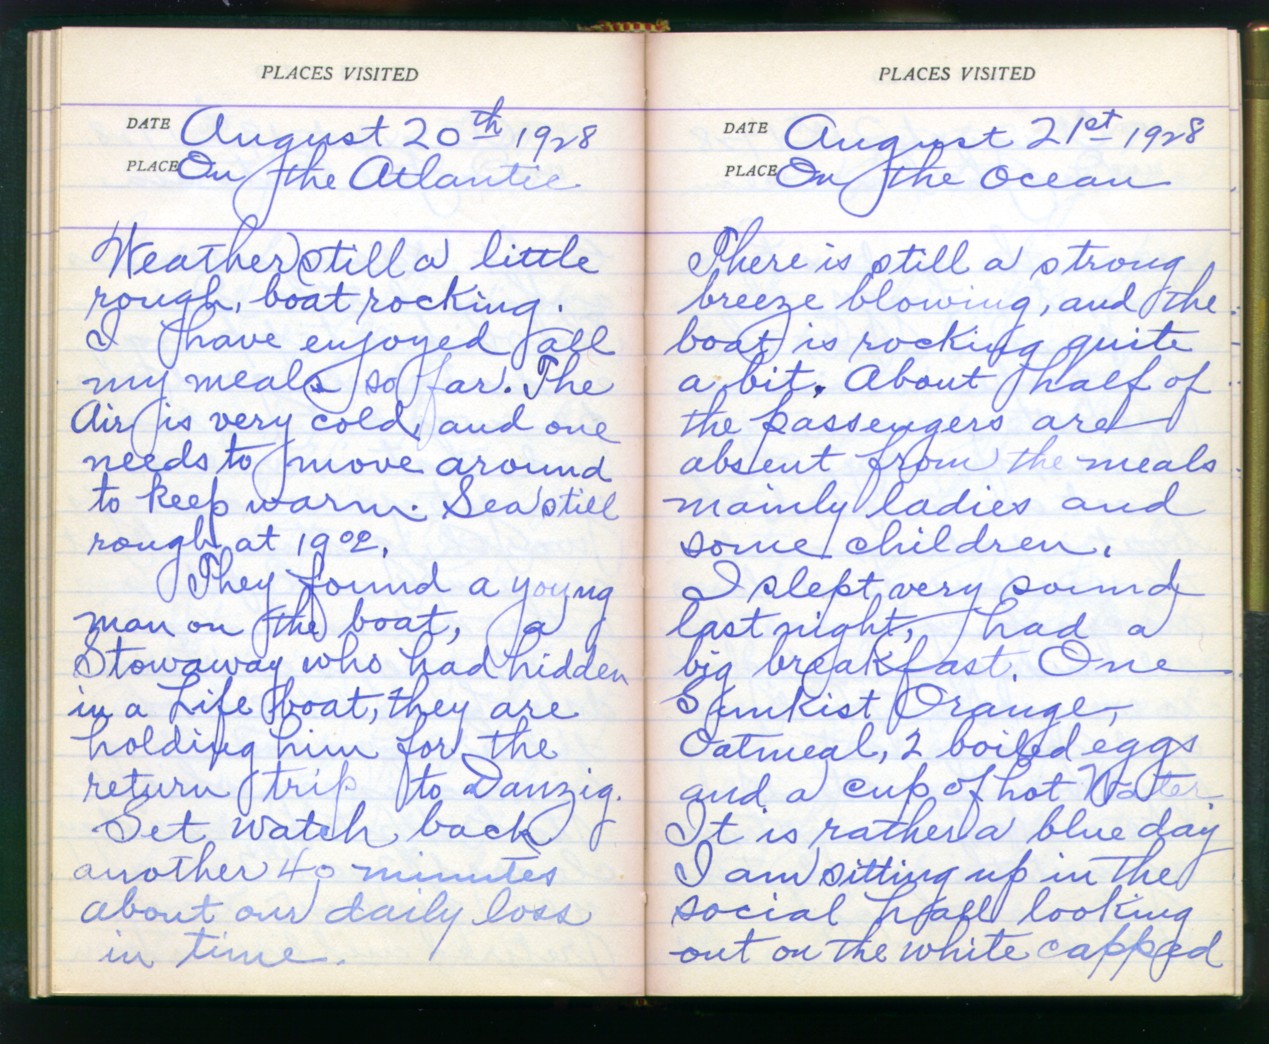 PLACES VISITED
DATE August 20th 1928
PLACE On the Atlantic
Weather still a little
rough, boat rocking.
I have enjoyed all
my meals so far. The
Air is very cold, and one
needs to move around
to keep warm. Sea still
rough at 19 02.
They found a young
man on the boat, a
Stowaway who had hidden
in a Life boat, they are
holding him for the
return trip to Danzig.
Set watch back
another 40 minutes
about our daily loss
in time.
PLACES VISITED
DATE August 21st 1928
PLACE On the Ocean
There is still a strong
breeze blowing, and the
boat is rocking quite
a bit. About half of
the passengers are
absent from the meals
mainly ladies and
some children.
I slept very sound
last night, had a
big breakfast. One
Sunkist Orange,
Oatmeal, 2 boiled eggs
and a cup of hot Water.
It is rather a blue day
I am sitting up in the
social hall looking
out on the white capped